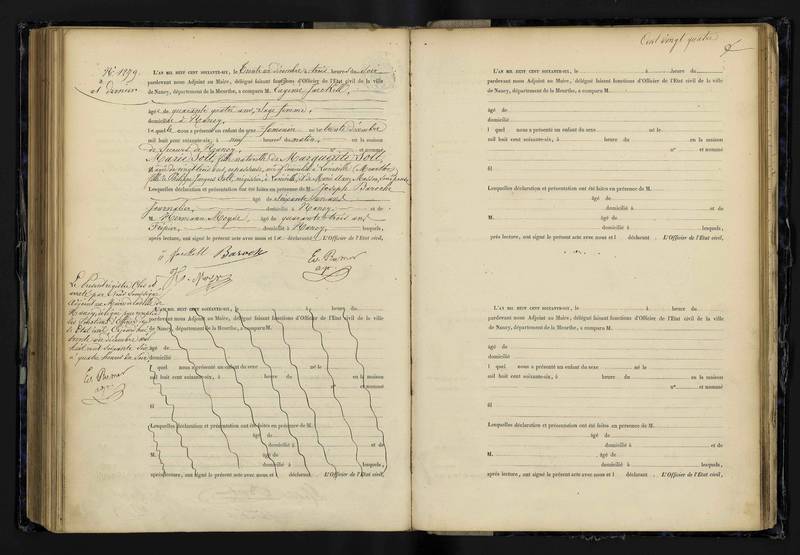 Cent vingt quatre
N° 1279
et dernier
L'AN MIL HUIT CENT SOIXANTE-SIX, le trente un décembre à trois heures du soir
pardevant nous Adjoint au Maire, délégué faisant fonctions d'Officier de l'Etat civil de la ville
de Nancy, département de la Meurthe, a comparu M.
âgée de quarante quatre ans, sage femme,
domiciliée à Nancy,
laquelle nous a présenté un enfant du sexe féminin né le trente décembre
mil huit cent soixante-six, à neuf heures du matin, en la maison
de Secours de Nancy, n° et nommé
Marie Soll, fille naturelle de Marguerite Soll,
âgée de vingt trois ans, repasseuse, née et domiciliée à Lunéville (Meurthe)
fille de Philippe Jacques Soll,
Lesquelles déclaration et présentation ont été faites en présence de M. Joseph Baroche
âgé de soixante
journalier, domicilié à Nancy, et de
M. Hermann Moyse, âgé de quarante trois ans
fripier, domicilié à Nancy, lesquels,
après lecture, ont signé le présent acte avec nous et la déclarante. L'Officier de l'Etat civil,
Le présent registre clos et
arrêté par Nous soussigné
Adjoint au Maire de la ville de
Nancy, délégué pour remplir
les fonctions d'Officier
de l'Etat civil, Cejourd'hui
trente un décembre mil
huit cent soixante six
à quatre heures du soir
L'AN MIL HUIT CENT SOIXANTE-SIX, le à heure du
pardevant nous Adjoint au Maire, délégué faisant fonctions d'Officier de l'Etat civil de la ville
de Nancy, département de la Meurthe, a comparu M.
âgé de
domicilié
l quel nous a présenté un enfant du sexe né le
mil huit cent soixante-six, à heure du en la maison
n° et nommé
fil
Lesquelles déclaration et présentation ont été faites en présence de M.
âgé de
domicilié à et de
M. âgé de
domicilié à lesquels,
après lecture, ont signé le présent acte avec nous et l déclarant . L'Officier de l'Etat civil,
L'AN MIL HUIT CENT SOIXANTE-SIX, le à heure du
pardevant nous Adjoint au Maire, délégué faisant fonctions d'Officier de l'Etat civil de la ville
de Nancy, département de la Meurthe, a comparu M.
âgé de
domicilié
l quel nous a présenté un enfant du sexe né le
mil huit cent soixante-six, à heure du en la maison
n° et nommé
fil
Lesquelles déclaration et présentation ont été faites en présence de M.
âgé de
domicilié à et de
M. âgé de
domicilié à lesquels,
près lecture, ont signé le présent acte avec nous et l déclarant . L'Officier de l'Etat civil,
L'AN MIL HUIT CENT SOIXANTE-SIX, le à heure du
pardevant nous Adjoint au Maire, délégué faisant fonctions d'Officier de l'Etat civil de la ville
de Nancy, département de la Meurthe, a comparu M.
âgé de
domicilié
l quel nous a présenté un enfant du sexe né le
mil huit cent soixante-six, à heure du en la maison
n° et nommé
fil
Lesquelles déclaration et présentation ont été faites en présence de M.
âgé de
domicilié à et de
M. âgé de
domicilié à lesquels,
après lecture, ont signé le présent acte avec nous et l déclarant . L'Officier de l'Etat civil,